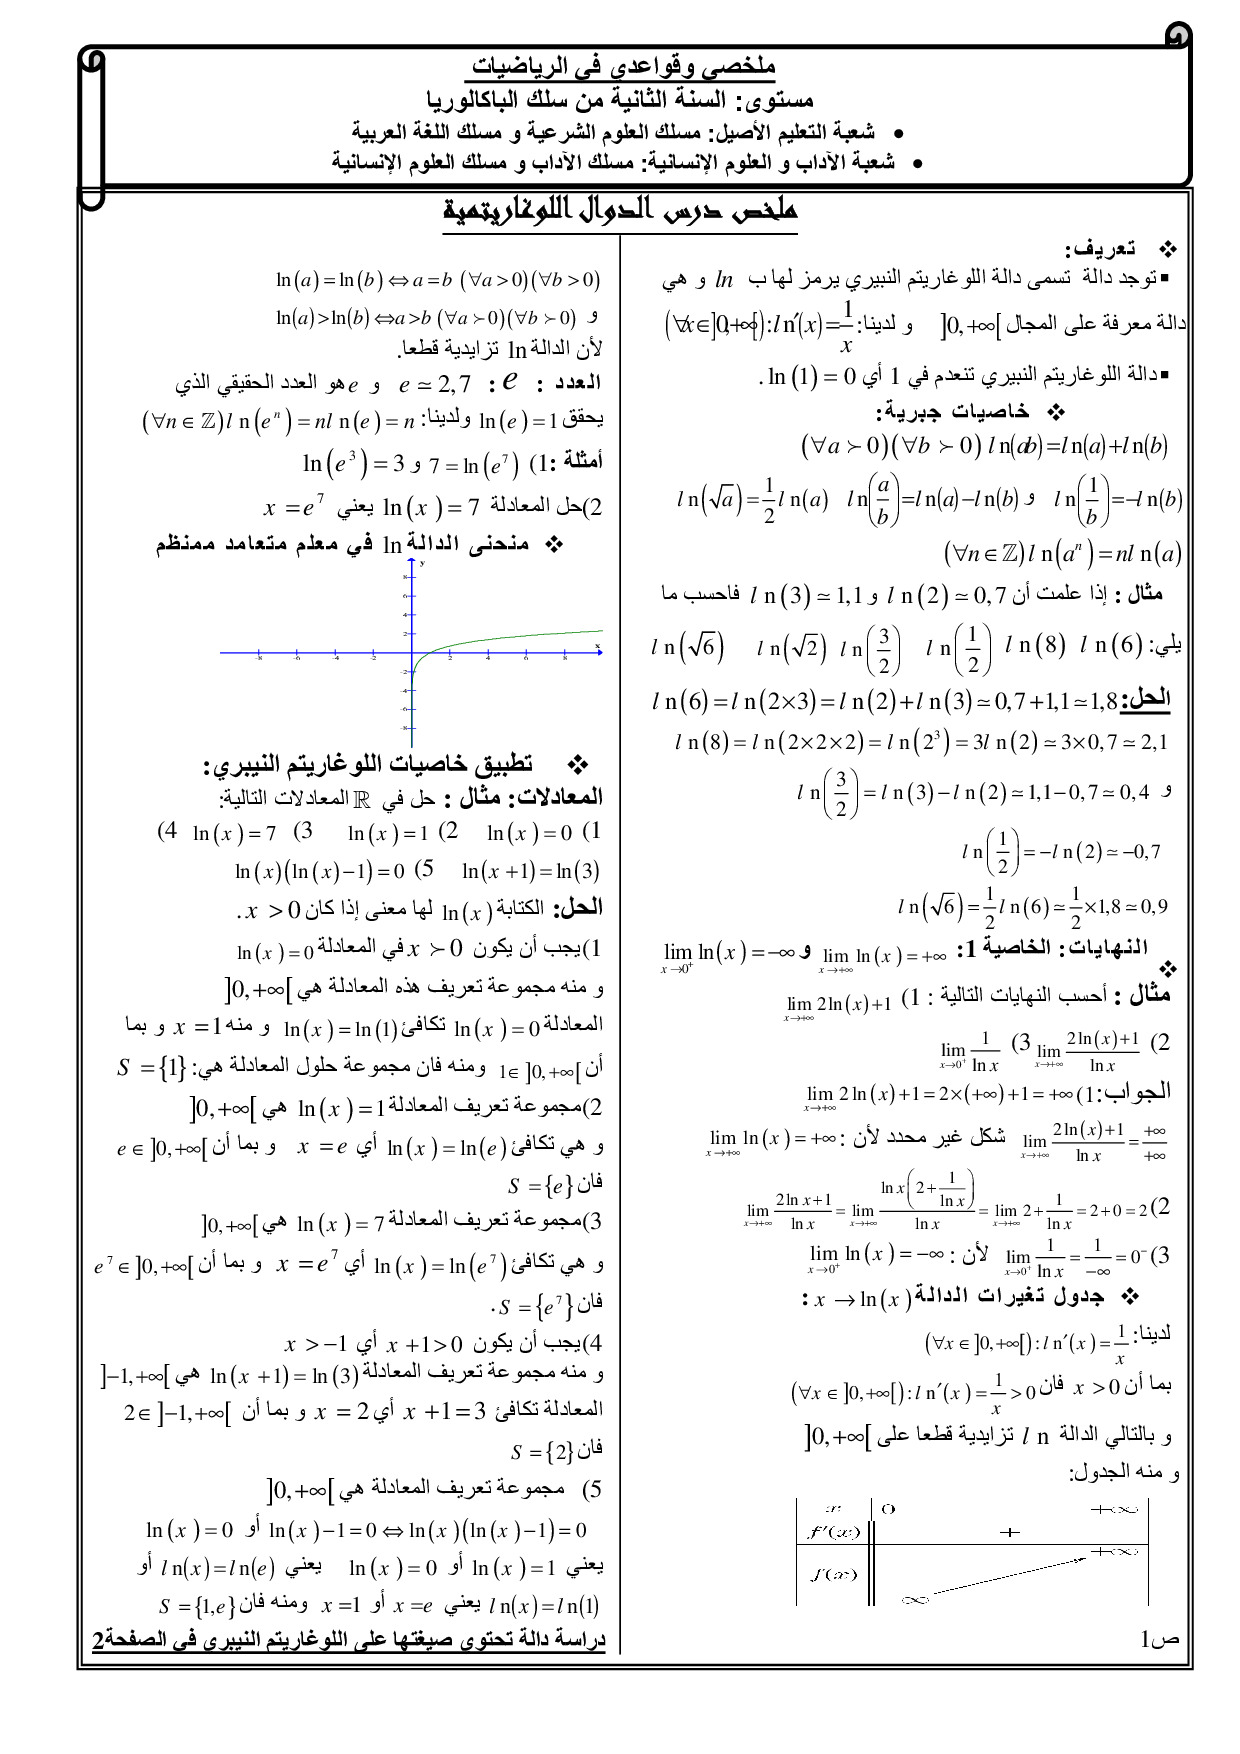 ملخصي وقواعدي في الرياضيات
مستوى: السنة الثانية من سلك الباكالوريا
• شعبة التعليم الأصيل: مسلك العلوم الشرعية و مسلك اللغة العربية
• شعبة الآداب و العلوم الإنسانية: مسلك الآداب و مسلك العلوم الإنسانية
ملخص درس الدوال اللوغاريتمية
❖ تعريف:
▪ توجد دالة تسمى دالة اللوغاريتم النبيري يرمز لها ب ln و هي
دالة معرفة على المجال ]0,+∞[ و لدينا: (∀x∈]0,+∞[): ln′(x)=1/x
▪ دالة اللوغاريتم النبيري تنعدم في 1 أي ln(1) = 0 .
❖ خاصيات جبرية:
(∀a ≻ 0)(∀b ≻ 0) ln(ab)=ln(a)+ln(b)
ln(1/b)=−ln(b) و ln(a/b)=ln(a)−ln(b) ln(√a)=1/2 ln(a)
(∀n∈ℤ) ln(aⁿ)=n ln(a)
مثال : إذا علمت أن ln(2) ≃ 0,7 و ln(3) ≃ 1,1 فاحسب ما
يلي: ln(6) ln(8) ln(1/2) ln(3/2) ln(√2) ln(√6)
الحل: ln(6)=ln(2×3)=ln(2)+ln(3)≃0,7+1,1≃1,8
ln(8)=ln(2×2×2)=ln(2³)=3ln(2)≃3×0,7≃2,1
و ln(3/2)=ln(3)−ln(2)≃1,1−0,7≃0,4
ln(1/2)=−ln(2)≃−0,7
ln(√6)=1/2 ln(6)≃1/2×1,8≃0,9
❖ النهايات: الخاصية 1: lim x→+∞ ln(x)=+∞ و lim x→0⁺ ln(x)=−∞
مثال : أحسب النهايات التالية : 1) lim x→+∞ 2ln(x)+1
2) lim x→+∞ (2ln(x)+1)/ln x 3) lim x→0⁺ 1/ln x
الجواب: 1) lim x→+∞ 2ln(x)+1=2×(+∞)+1=+∞
lim x→+∞ (2ln(x)+1)/ln x = +∞/+∞ شكل غير محدد لأن : lim x→+∞ ln(x)=+∞
2) lim x→+∞ (2ln x+1)/ln x = lim x→+∞ ln x(2+1/ln x)/ln x = lim x→+∞ 2+1/ln x = 2+0 = 2
3) lim x→0⁺ 1/ln x = 1/−∞ = 0⁻ لأن : lim x→0⁺ ln(x)=−∞
❖ جدول تغيرات الدالة x → ln(x) :
لدينا: (∀x∈]0,+∞[): ln′(x)=1/x
بما أن x > 0 فان (∀x∈]0,+∞[): ln′(x)=1/x>0
و بالتالي الدالة ln تزايدية قطعا على ]0,+∞[
و منه الجدول:
x 0 +∞
f′(x) +
+∞
f(x)
∞
ص1
ln(a)=ln(b)⇔a=b (∀a>0)(∀b>0)
و ln(a)>ln(b)⇔a>b (∀a≻0)(∀b≻0)
لأن الدالة ln تزايدية قطعا.
العدد : e : e ≃ 2,7 و e هو العدد الحقيقي الذي
يحقق ln(e)=1 ولدينا: (∀n∈ℤ) ln(eⁿ)=n ln(e)=n
أمثلة :1) 7=ln(e⁷) و ln(e³)=3
2)حل المعادلة ln(x)=7 يعني x=e⁷
❖ منحنى الدالة ln في معلم متعامد ممنظم
y
8
6
4
2
x
-8 -6 -4 -2 2 4 6 8
-2
-4
-6
-8
❖ تطبيق خاصيات اللوغاريتم النيبري:
المعادلات: مثال : حل في ℝ المعادلات التالية:
1) ln(x)=0 2) ln(x)=1 3) ln(x)=7 4)
ln(x+1)=ln(3) 5) ln(x)(ln(x)−1)=0
الحل: الكتابة ln(x) لها معنى إذا كان x > 0 .
1)يجب أن يكون x ≻ 0 في المعادلة ln(x)=0
و منه مجموعة تعريف هذه المعادلة هي ]0,+∞[
المعادلة ln(x)=0 تكافئ ln(x)=ln(1) و منه x=1 و بما
أن 1∈]0,+∞[ ومنه فان مجموعة حلول المعادلة هي: S={1}
2)مجموعة تعريف المعادلة ln(x)=1 هي ]0,+∞[
و هي تكافئ ln(x)=ln(e) أي x=e و بما أن e∈]0,+∞[
فان S={e}
3)مجموعة تعريف المعادلة ln(x)=7 هي ]0,+∞[
و هي تكافئ ln(x)=ln(e⁷) أي x=e⁷ و بما أن e⁷∈]0,+∞[
فان S={e⁷}.
4)يجب أن يكون x+1>0 أي x>−1
و منه مجموعة تعريف المعادلة ln(x+1)=ln(3) هي ]−1,+∞[
المعادلة تكافئ x+1=3 أي x=2 و بما أن 2∈]−1,+∞[
فان S={2}
5) مجموعة تعريف المعادلة هي ]0,+∞[
ln(x)(ln(x)−1)=0 ⇔ ln(x)−1=0 أو ln(x)=0
يعني ln(x)=1 أو ln(x)=0 يعني ln(x)=ln(e) أو
ln(x)=ln(1) يعني x=e أو x=1 ومنه فان S={1,e}
دراسة دالة تحتوي صيغتها على اللوغاريتم النيبري في الصفحة2